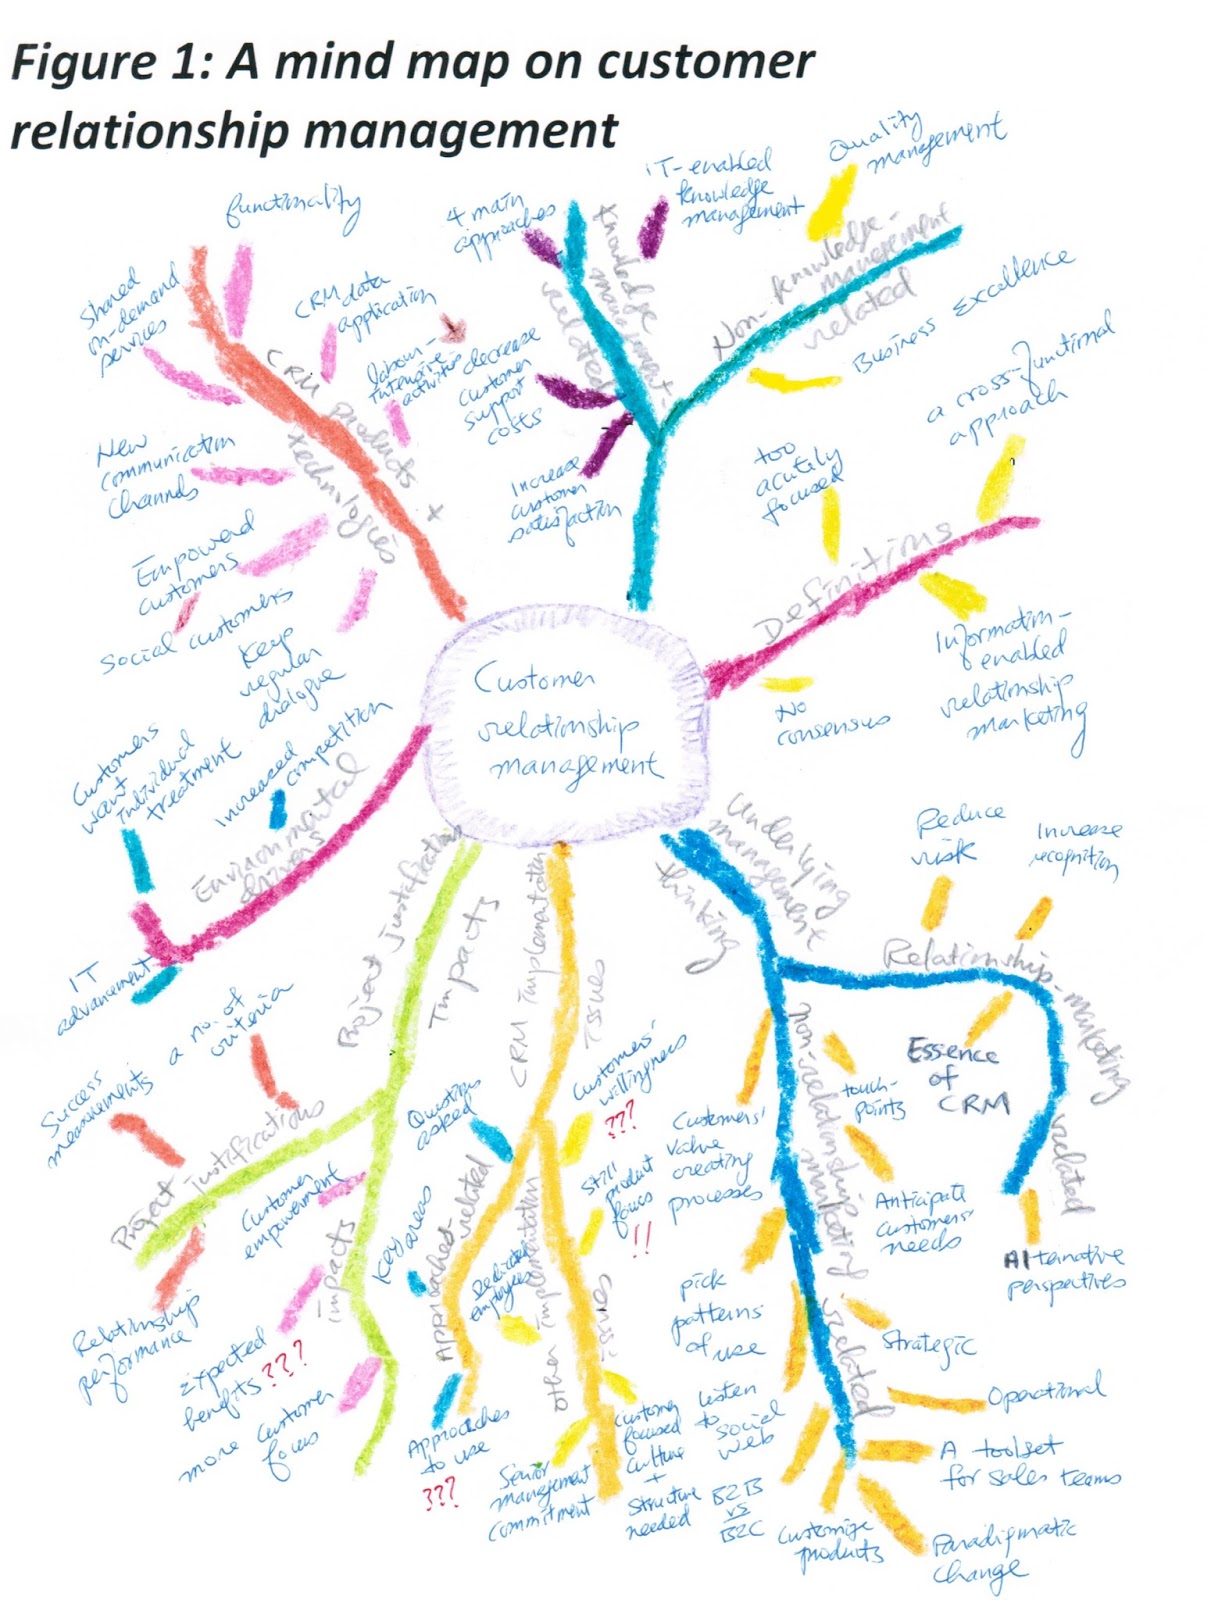 Figure 1: A mind map on customer
relationship management
Customer
relationship
management
functionality
Shared
on-demand
services
CRM data
application
labour-
intensive
activities
New
communication
channels
CRM products +
technologies
Empowered
customers
Social customers
4 main
approaches
Knowledge
management-
related
IT-enabled
knowledge
management
decrease
customer
support
costs
Increase
customer
satisfaction
Quality
management
Non-
knowledge-
management
related
Business Excellence
a cross-functional
approach
too
acutely
focused
Definitions
Information-
enabled
relationship
marketing
No
consensus
Keep
regular
dialogue
Customers
want
individual
treatment
Increased
competition
Environmental
drivers
IT
advancement
Project justification
Impacts
a no. of
criteria
Success
measurements
Project justifications
Relationship
performance
Customer
empowerment
impacts
Expected
benefits ???
more customer
focus
CRM implementation
Issues
Questions
asked
Key areas
Approaches-
related
Approaches
to use
???
Customers'
willingness
???
Still
product
focus
!!
Dedicated
employees
other implementation
issues
Senior
management
commitment
Customer
focused
culture
+
Structure
needed
Underlying
management
thinking
Reduce
risk
Increase
recognition
Relationship-marketing
related
Essence
of
CRM
Alternative
perspectives
non-relationship marketing
related
touch-
points
Customers'
value
creating
processes
Anticipate
customers'
needs
pick
patterns
of use
Strategic
Operational
Listen
to
social
web
A toolset
for sales teams
B2B
vs
B2C
Customize
products
Paradigmatic
change